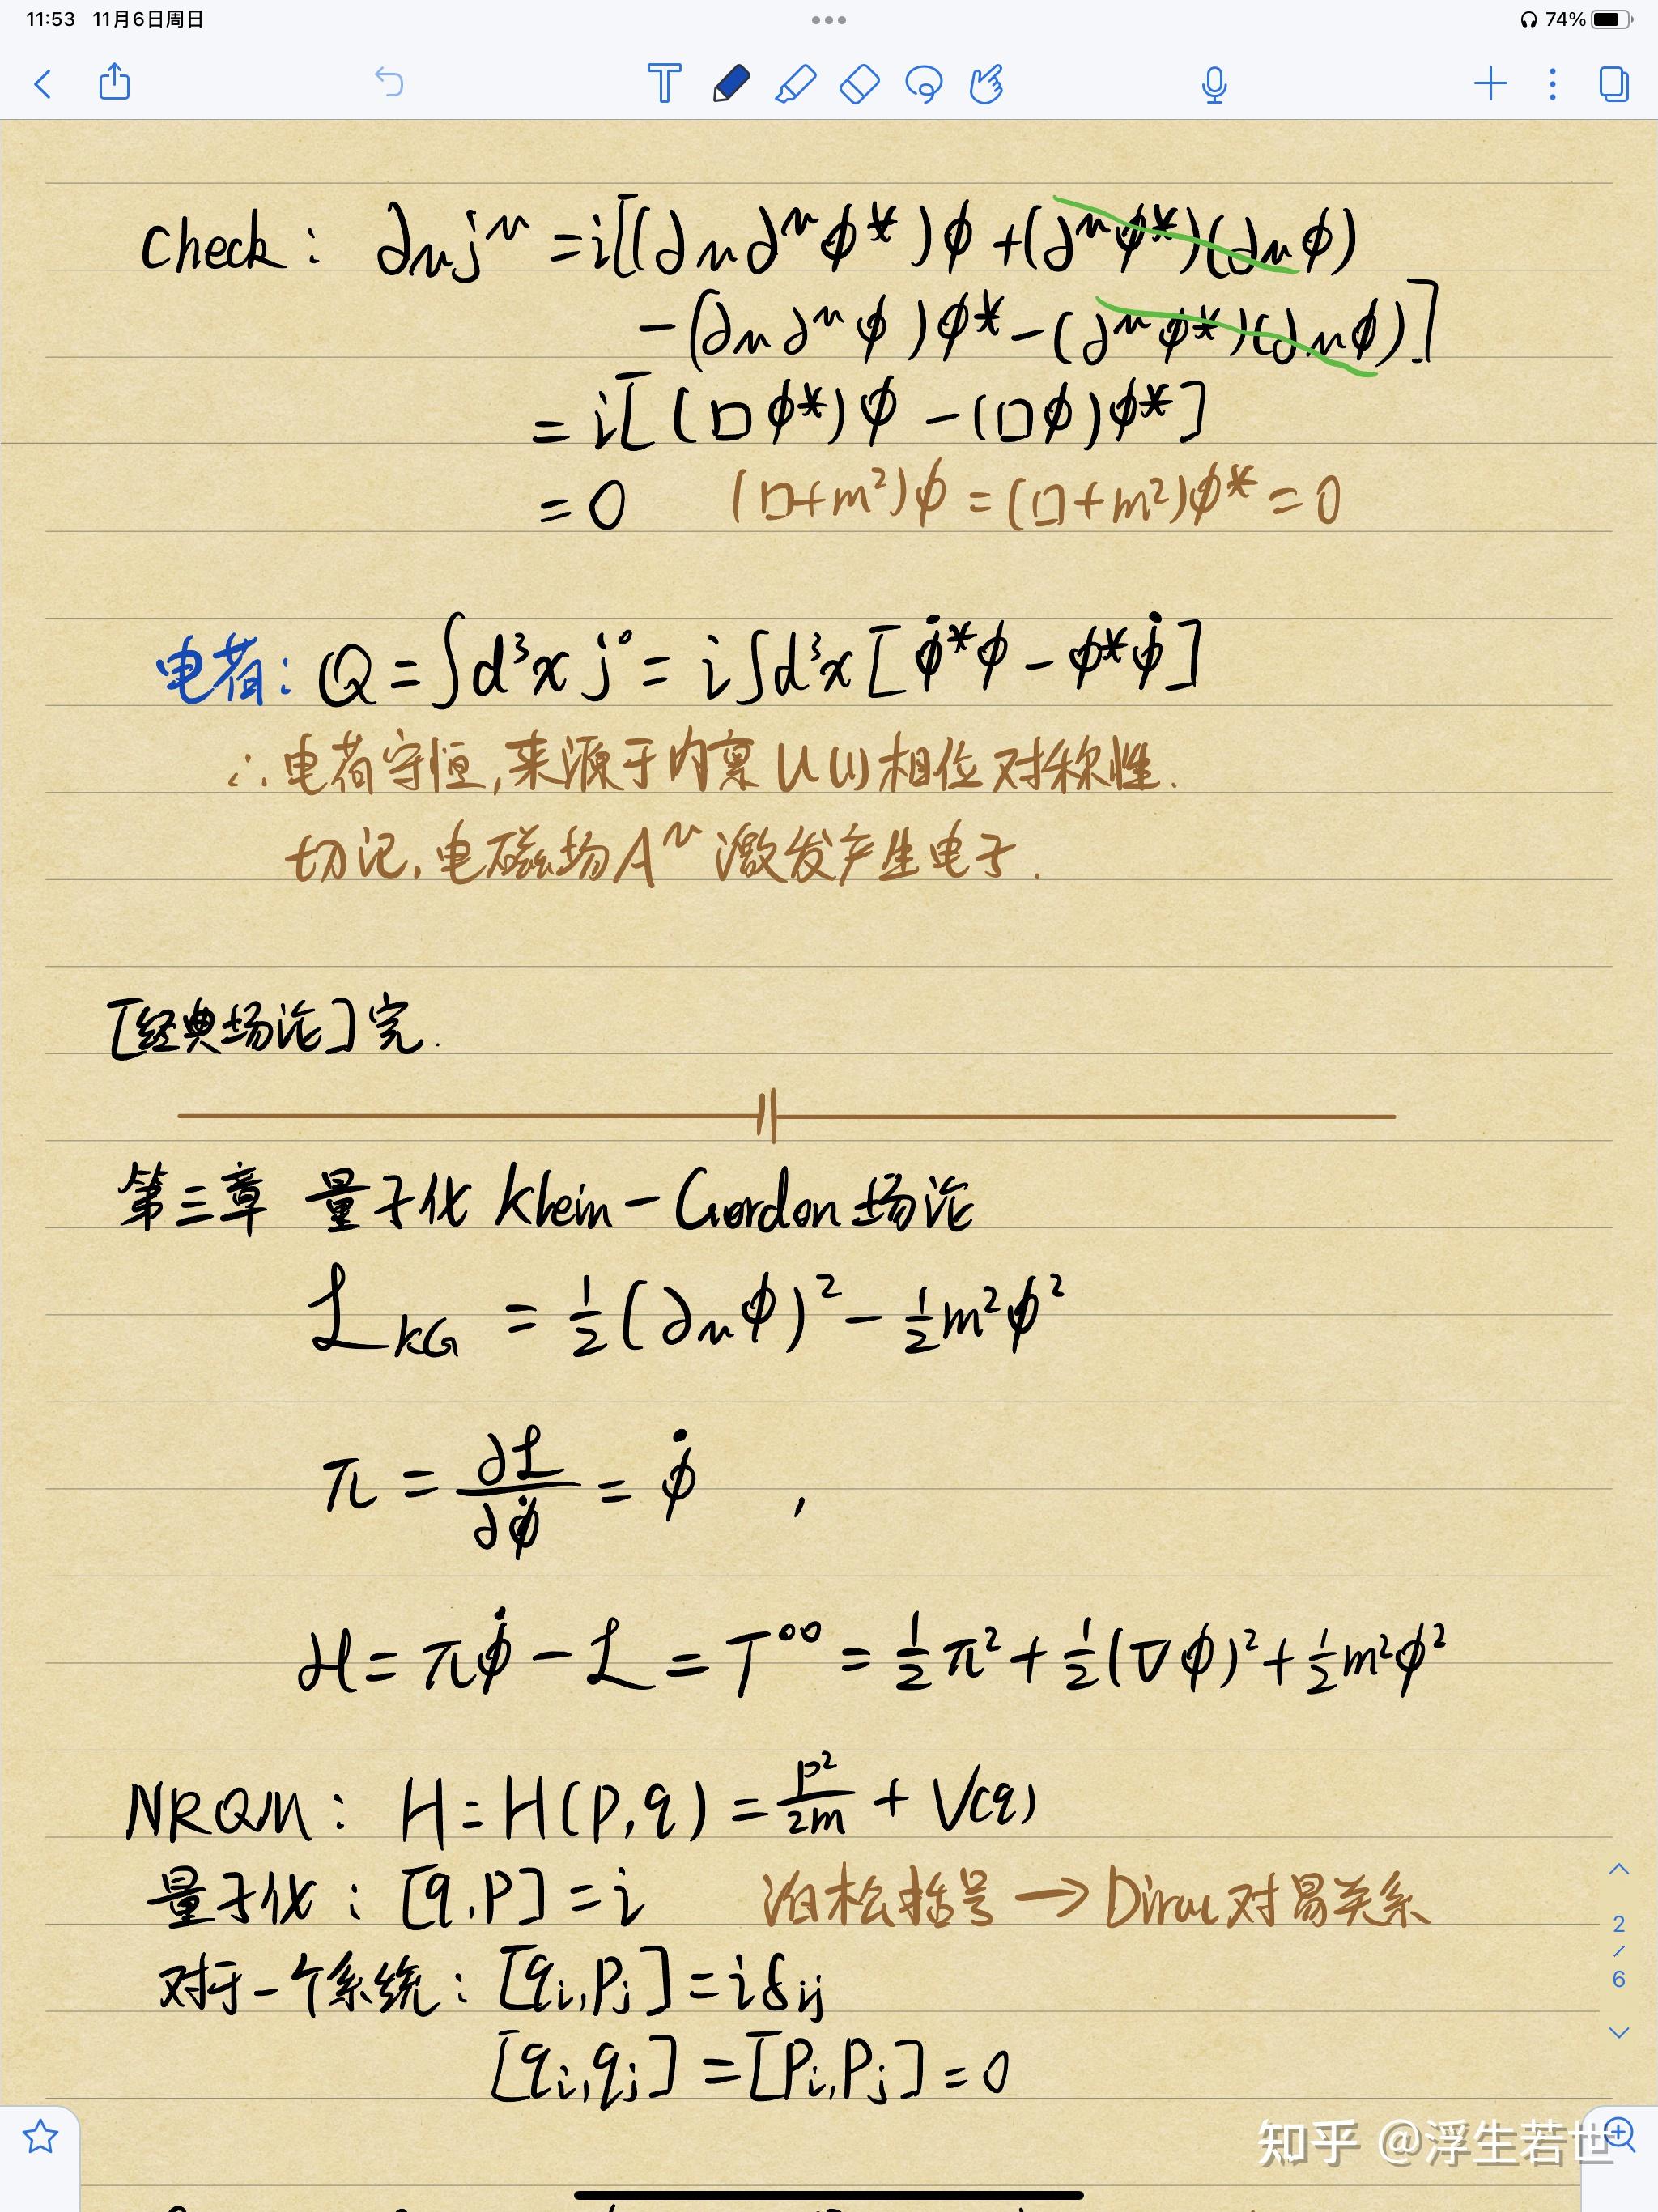 11:53 11月6日周日 74%
Check: ∂μj^μ = i[(∂μ∂^μφ*)φ + (∂^μφ*)(∂μφ)
-(∂μ∂^μφ)φ* - (∂^μφ*)(∂μφ)]
= i[(□φ*)φ - (□φ)φ*]
= 0 (□+m²)φ = (□+m²)φ* = 0
电荷: Q = ∫d³x j⁰ = i∫d³x[φ̇*φ - φ*φ̇]
∴电荷守恒,来源于内禀U(1)相位对称性.
切记,电磁场A^μ激发产生电子.
[经典场论]完.
第三章 量子化 Klein-Gordon场论
ℒ_KG = ½(∂μφ)² - ½m²φ²
π = ∂ℒ/∂φ̇ = φ̇ ,
ℋ = πφ̇ - ℒ = T⁰⁰ = ½π² + ½(∇φ)² + ½m²φ²
NRQM: H = H(p,q) = p²/2m + V(q)
量子化: [q,p] = i 泊松括号 → Dirac对易关系
对于一个系统: [qi,pj] = iδij
[qi,qj] = [pi,pj] = 0
2/6
知乎 @浮生若世